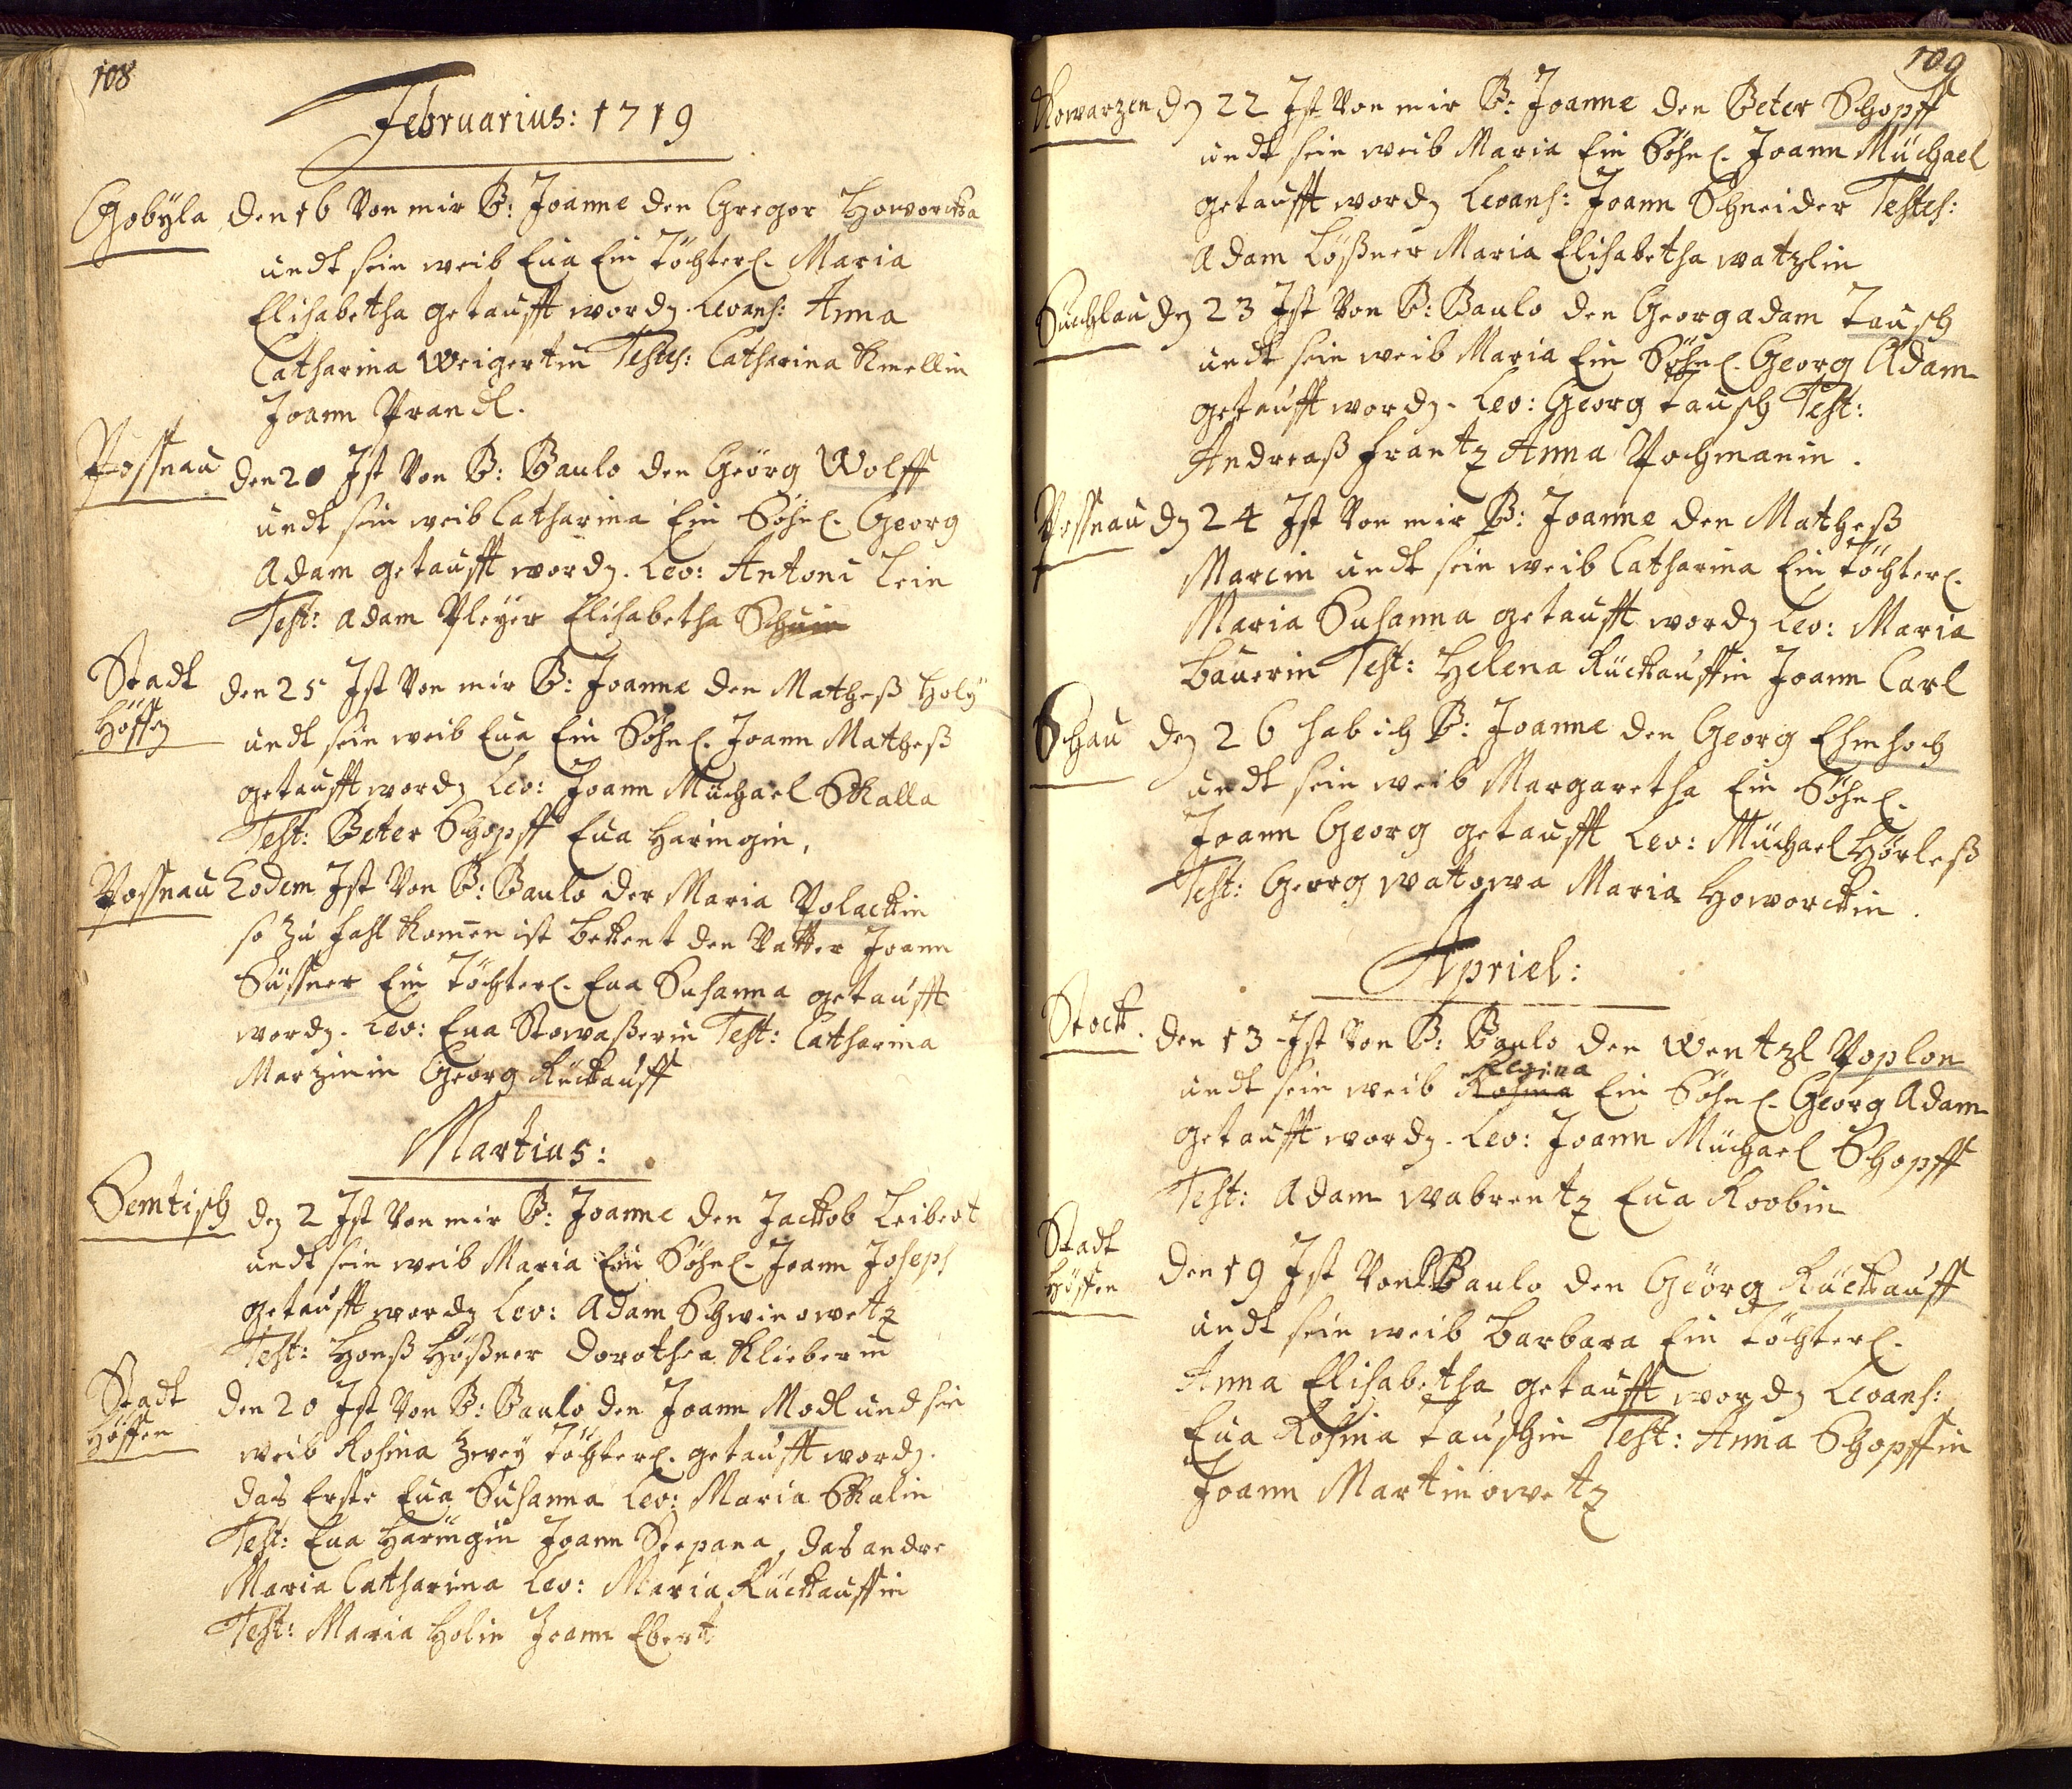 108
Februarius: 1719
Chobÿla den 16 Von mir P: Joanne den Gregor Howorcka
undt sein weib Eua Ein Töchterl. Maria
Elisabetha getaufft wordn. Levans: Anna
Catharina Weigertin Testes: Catharina Kmellin
Joann Prandl.
Possnau den 20 Ist Von P: Paulo den Geörg Wolff
undt sein weib Catharina Ein Söhnl. Georg
Adam getaufft wordn. Lev: Antoni Lein
Test: Adam Pleÿer Elisabetha
Stadt den 25 Ist Von mir P: Joanne den Matheß Holÿ
Höffen undt sein weib Eua Ein Söhnl. Joann Matheß
getaufft wordn Lev: Joann Müchael Skalla
Test: Peter Schopff Eua Haringin,
Possnau Eodem Ist Von P: Paulo der Maria Polackin
so zu fahl komen ist bekent den Vatter Joann
Süssner Ein Töchterl. Eua Susanna getaufft
wordn. Lev: Eua Stowaßerin Test: Catharina
Marzinin Georg Rückauff
Martius:
Semtisch den 2 Ist Von mir P: Joanne den Jackob Leibert
undt sein weib Maria Ein Söhnl. Joann Joseph
getaufft wordn Lev: Adam Schwinowetz
Test: Honß Hößner Dorothea Klieberin
Stadt den 20 Ist Von P: Paulo den Joann Modl und sin
Höffen weib Rosina Zweÿ Töchterl. getaufft wordn.
das Erste Eua Susanna Lev: Maria Skalin
Test: Eua Haringin Joann Stepana, das andre
Maria Catharina Lev: Maria Rückauffin
Test: Maria Holin Joann Ebert
109
Kowarzen dn 22 Ist Von mir P: Joanne den Peter Schopff
undt sein weib Maria Ein Söhnl. Joann Müchael
getaufft wordn Levans: Joann Schneider Testes:
Adam Lößner Maria Elisabetha watzlin
Suchlau dn 23 Ist Von P: Paulo den Georg adam Tausch
undt sein weib Maria Ein Söhnl. Georg Adam
getaufft wordn. Lev: Georg Tausch Test:
Andreaß frantz Anna Pochmanin.
Possnau dn 24 Ist Von mir P: Joanne den Matheß
Marcin undt sein weib Catharina Ein Töchterl.
Maria Susanna getaufft wordn Lev: Maria
Bauerin Test: Helena Rückauffin Joann Carl
Schau dn 26 hab ich P: Joanne den Georg Ehmhoch
undt sein weib Margaretha Ein Söhnl.
Joann Georg getaufft Lev: Müchael Hörleß
Test: Georg watowa Maria Howorckin.
Apriel:
Stock. den 13 Ist Von P: Paulo den Wentzl Poplon
Regina
undt sein weib Rosina Ein Söhnl. Georg Adam
getaufft wordn. Lev: Joann Müchael Schopff
Test: Adam wabrentz Eua Roobin
Stadt
Höffen den 19 Ist Von P: Paulo den Geörg Rückauff
undt sein weib Barbara Ein Töchterl.
Anna Elisabetha getaufft wordn Levans:
Eua Rosina Tauschin Test: Anna Schopffin
Joann Martinowetz